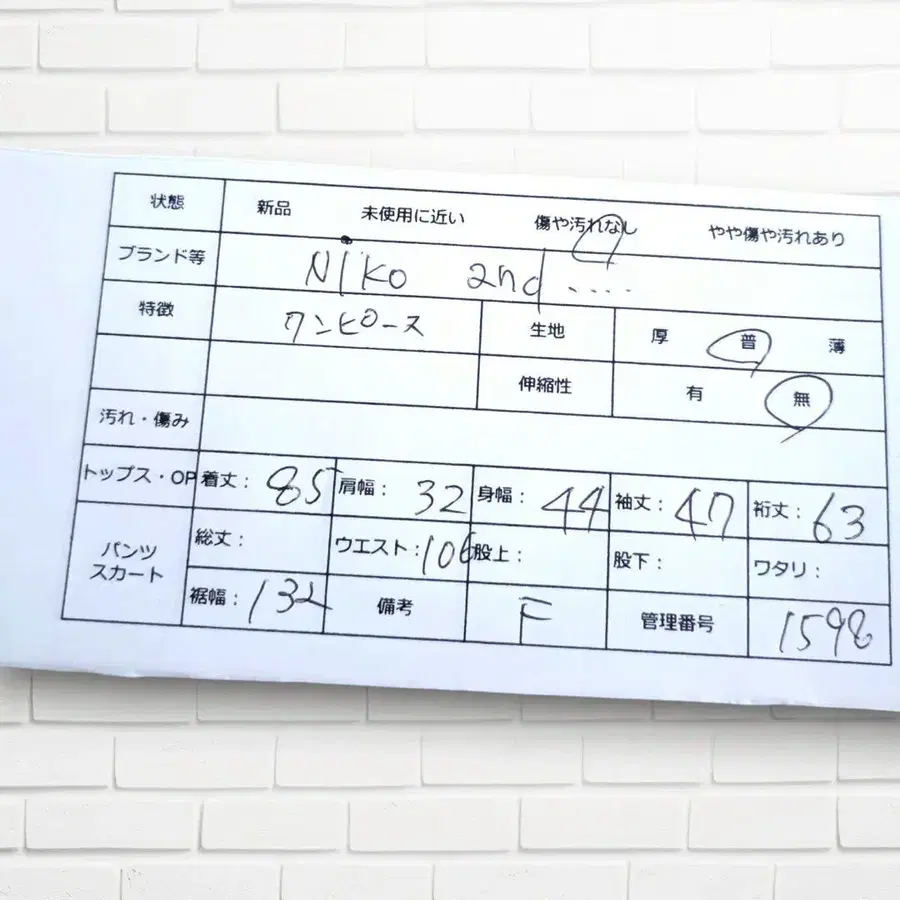 状態 新品 未使用に近い 傷や汚れなし やや傷や汚れあり
ブランド等 Niko and ....
特徴 ワンピース 生地 厚 普 薄
伸縮性 有 無
汚れ・傷み
トップス・OP 着丈: 85 肩幅: 32 身幅: 44 袖丈: 47 裄丈: 63
パンツ スカート 総丈: ウエスト: 106 股上: 股下: ワタリ:
裾幅: 132 備考 F 管理番号 1598